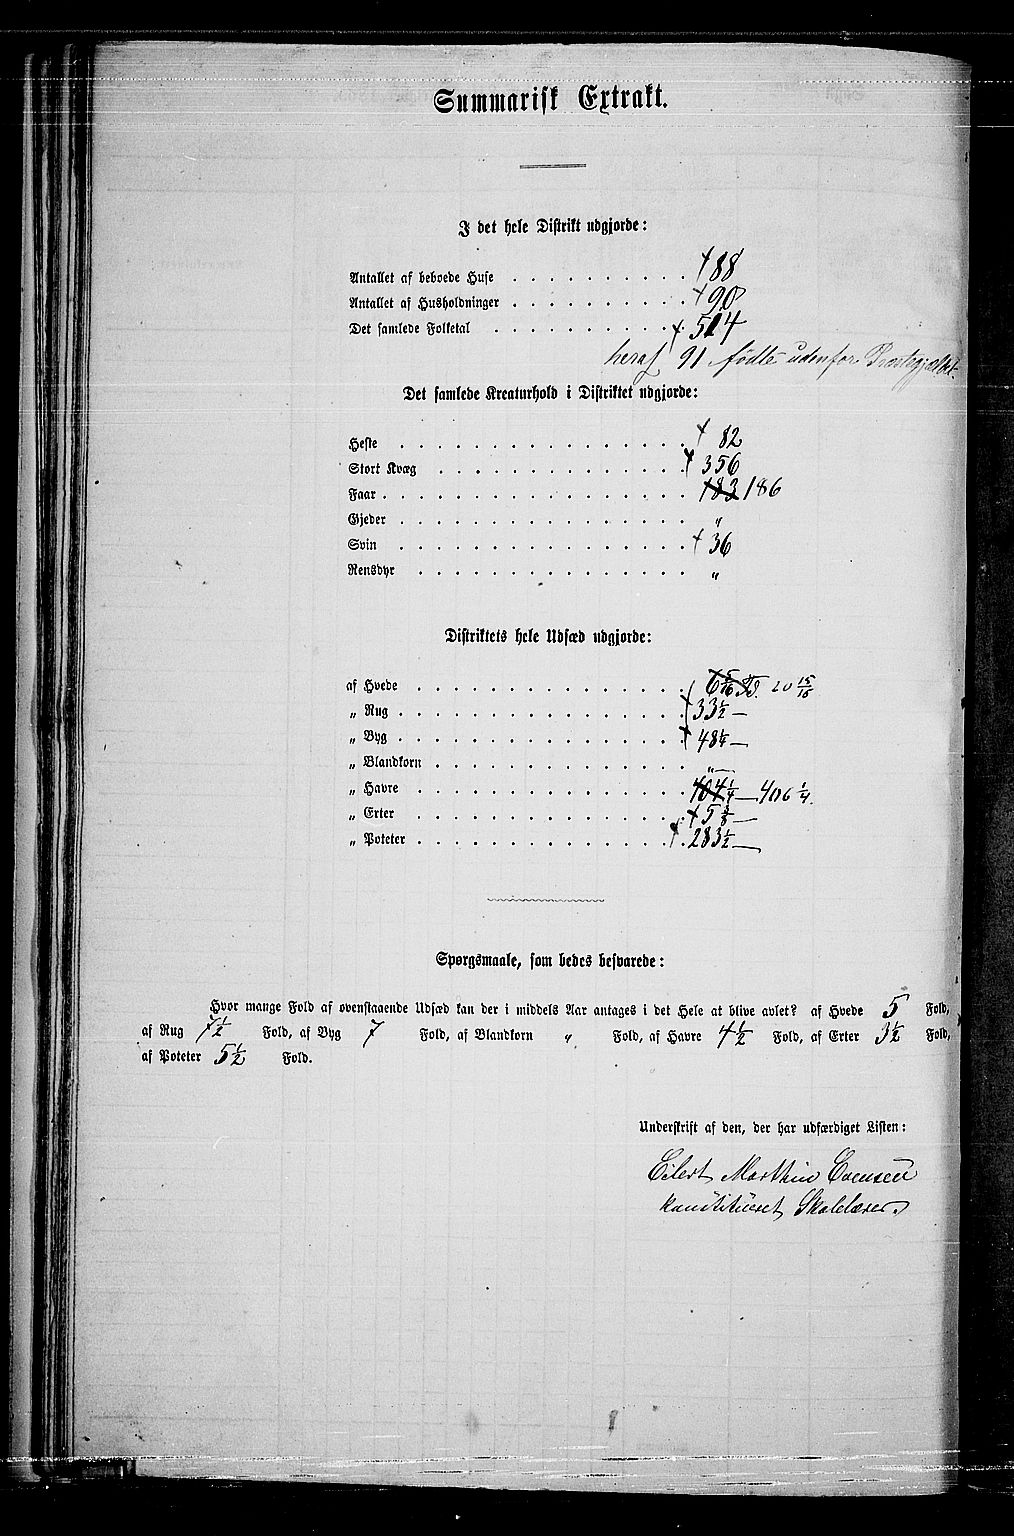 Summarisk Extrakt.
I det hele Distrikt udgjorde:
Antallet af beboede Huse . . . . . . . . . . . . . † 88
Antallet af Husholdninger . . . . . . . . . . . . . † 90
Det samlede Folketal . . . . . . . . . . . . . . † 514
heraf 91 fødte udenfor Præstegjældet.
Det samlede Kreaturhold i Distriktet udgjorde:
Heste . . . . . . . . . . . . . . † 82
Stort Kvæg . . . . . . . . . . . . . † 356
Faar . . . . . . . . . . . . . . 183 186
Gjeder . . . . . . . . . . . . . . „
Svin . . . . . . . . . . . . . . † 36
Rensdyr . . . . . . . . . . . . . . „
Distriktets hele Udsæd udgjorde:
af Hvede . . . . . . . . . . . . . . 6 5/16 Td. 20 15/16
„ Rug . . . . . . . . . . . . . . † 33 1/2 —
„ Byg . . . . . . . . . . . . . . † 48 1/4 —
„ Blandkorn . . . . . . . . . . . . . „ —
„ Havre . . . . . . . . . . . . . . 404 1/4 — 406 1/4.
„ Erter . . . . . . . . . . . . . . † 5 3/8 —
„ Poteter . . . . . . . . . . . . . † 283 1/2 —
Spørgsmaale, som bedes besvarede:
Hvor mange Fold af ovenstaaende Udsæd kan der i middels Aar antages i det Hele at blive avlet? af Hvede 5 Fold,
af Rug 7 1/2 Fold, af Byg 7 Fold, af Blandkorn „ Fold, af Havre 4 1/2 Fold, af Erter 3 1/2 Fold,
af Poteter 5 1/2 Fold.
Underskrift af den, der har udfærdiget Listen:
Eilert Marthin Evensen
konstitueret Skolelærer.